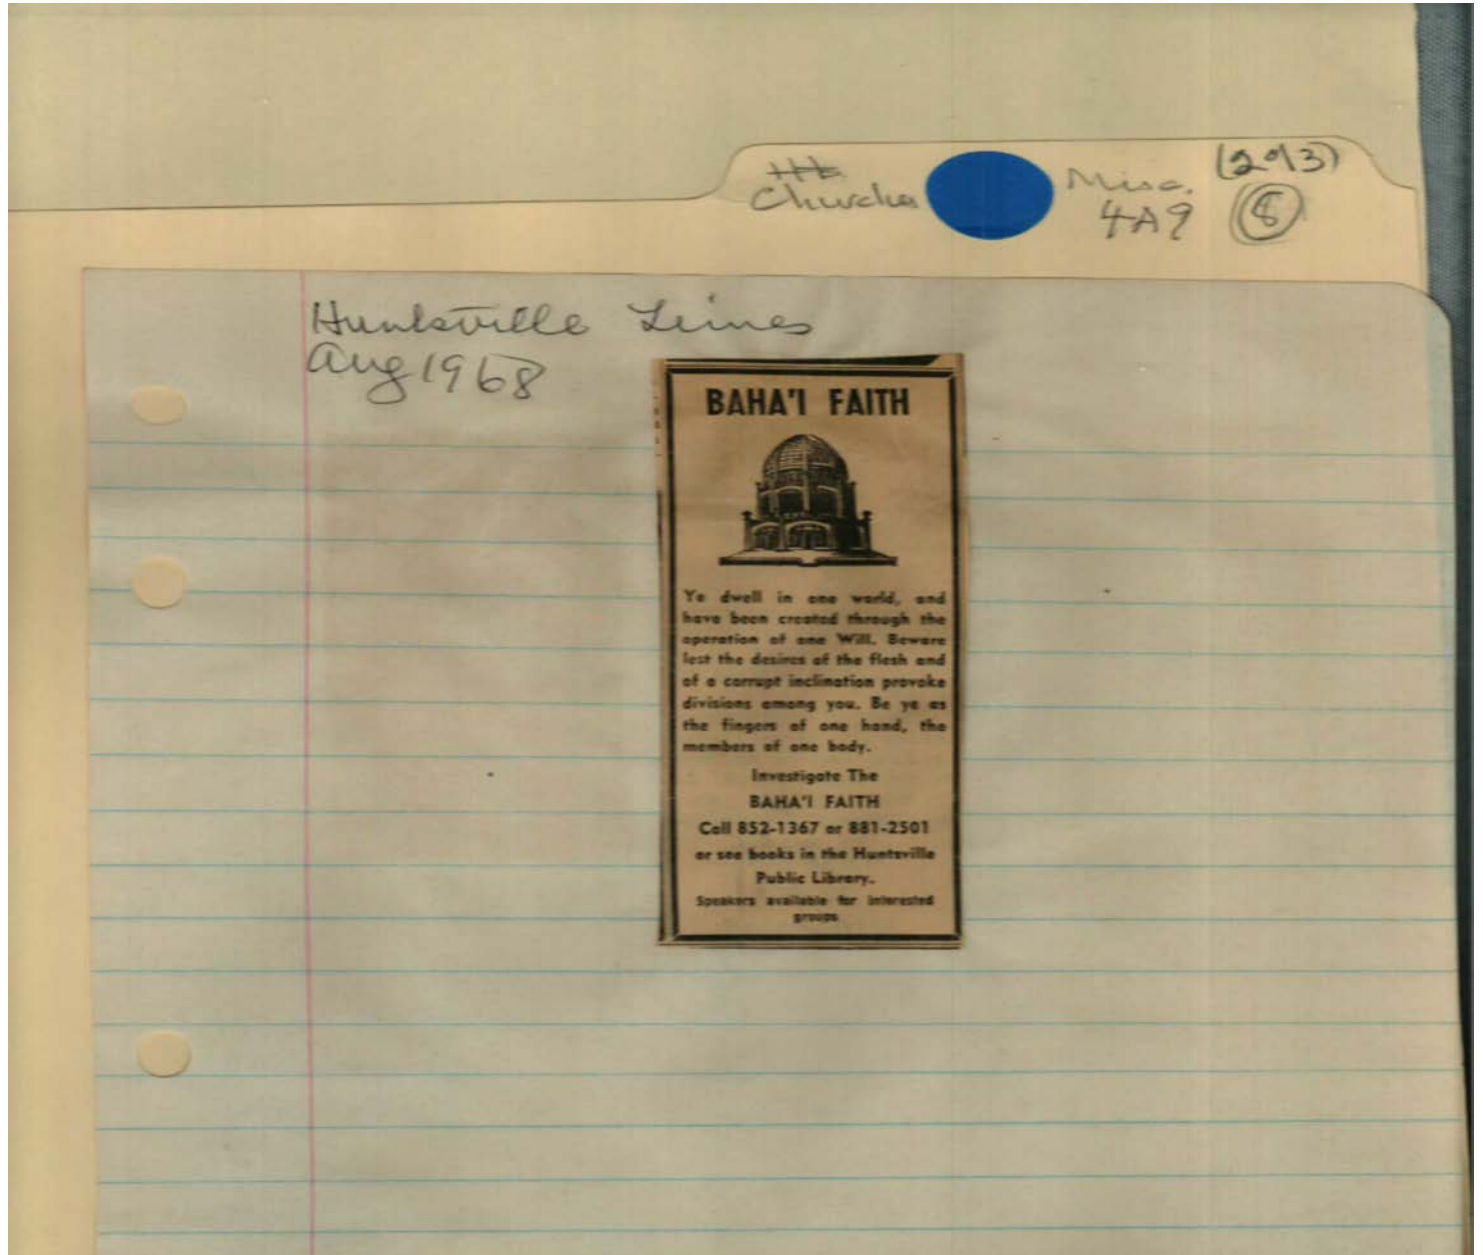 (2013)
Churches Misc.
4A9 8
Huntsville Times
Aug 1968
BAHA'I FAITH
Ye dwell in one world, and
have been created through the
operation of one Will. Beware
lest the desires of the flesh and
of a corrupt inclination provoke
divisions among you. Be ye as
the fingers of one hand, the
members of one body.
Investigate The
BAHA'I FAITH
Call 852-1367 or 881-2501
or see books in the Huntsville
Public Library.
Speakers available for interested
groups